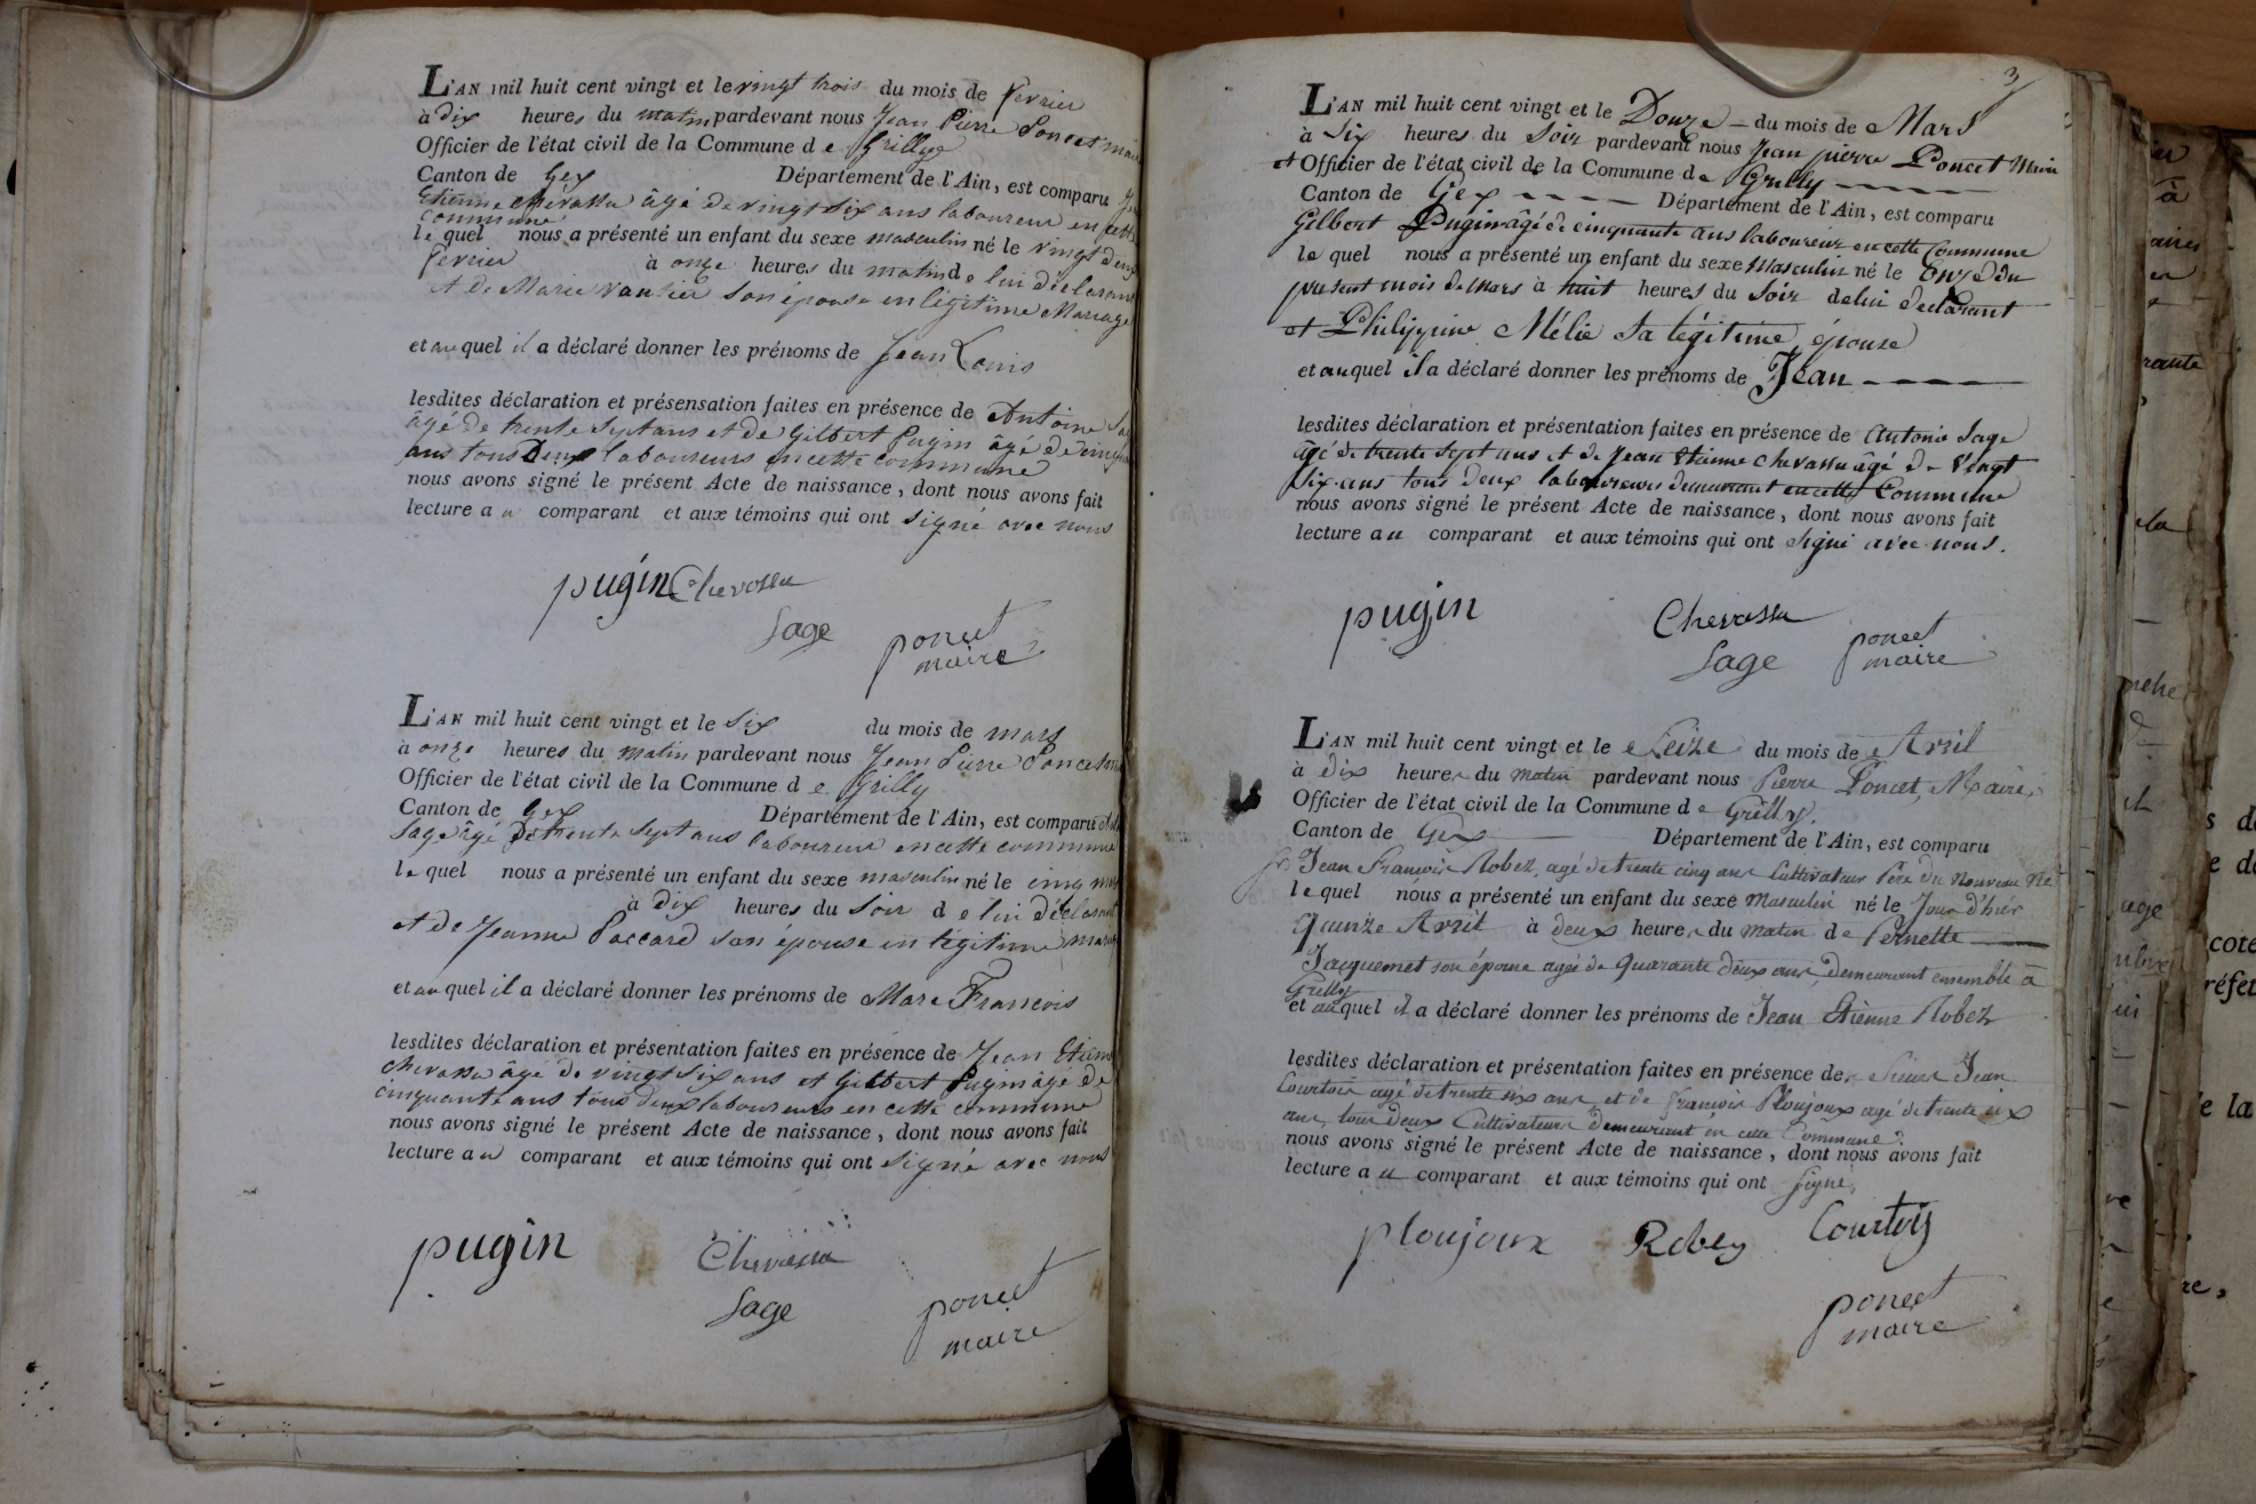 L'AN mil huit cent vingt et le vingt trois du mois de fevrier
à dix heures du matin pardevant nous Jean Pierre Poncet maire
Officier de l'état civil de la Commune de Grilly
Canton de Gex Département de l'Ain, est comparu
Etienne Chevassu âgé de vingt six ans laboureur en cette
commune
le quel nous a présenté un enfant du sexe masculin né le vingt deux
fevrier à onze heures du matin de lui déclarant
et de Marie vautier son épouse en légitime Mariage
et auquel il a déclaré donner les prénoms de Jean Louis
lesdites déclaration et présensation faites en présence de Antoine
âgé de trente sept ans et de Gilbert Pugin âgé de
ans tous Deux laboureurs en cette commune
nous avons signé le présent Acte de naissance, dont nous avons fait
lecture au comparant et aux témoins qui ont signé avec nous
pugin Chevassu
Sage poncet
maire
L'AN mil huit cent vingt et le Six du mois de mars
à onze heures du matin pardevant nous Jean Pierre Poncet
Officier de l'état civil de la Commune de Grilly
Canton de Gex Département de l'Ain, est comparu
Sage âgé de trente sept ans laboureur en cette commune
le quel nous a présenté un enfant du sexe masculin né le cinq
à dix heures du soir de lui déclarant
et de Jeanne Paccard son épouse en légitime
et auquel il a déclaré donner les prénoms de Marc François
lesdites déclaration et présentation faites en présence de Jean Etienne
Chevassu âgé de vingt six ans et Gilbert Pugin âgé de
cinquante ans tous deux laboureurs en cette commune
nous avons signé le présent Acte de naissance, dont nous avons fait
lecture au comparant et aux témoins qui ont signé avec nous
pugin Chevassu
Sage poncet
maire
3
L'AN mil huit cent vingt et le Douze du mois de Mars
à Six heures du Soir pardevant nous Jean pierre Poncet Maire
et Officier de l'état civil de la Commune de Grilly
Canton de Gex Département de l'Ain, est comparu
Gilbert Pugin âgé de cinquante ans laboureur en cette Commune
le quel nous a présenté un enfant du sexe Masculin né le Onze du
présent mois de Mars à huit heures du Soir de lui déclarant
et Philippine Mélie Sa légitime épouse
et auquel il a déclaré donner les prénoms de Jean
lesdites déclaration et présentation faites en présence de Antoine Sage
âgé de trente sept ans et de Jean Etienne Chevassu âgé de Vingt
Six ans tous deux laboureurs demeurant en cette Commune
nous avons signé le présent Acte de naissance, dont nous avons fait
lecture au comparant et aux témoins qui ont signé avec nous.
pugin Chevassu
Sage poncet
maire
L'AN mil huit cent vingt et le Seize du mois de Avril
à dix heures du matin pardevant nous Pierre Poncet, Maire,
Officier de l'état civil de la Commune de Grilly.
Canton de Gex Département de l'Ain, est comparu
Jean François Robez, agé de trente cinq ans Cultivateur Père du Nouveau Né
le quel nous a présenté un enfant du sexe Masculin né le Jour d'hier
Quinze Avril à deux heures du matin de Pernette
Jacquemet son épouse agée de Quarante deux ans, demeurant ensemble à
Grilly
et auquel il a déclaré donner les prénoms de Jean Etienne Robez
lesdites déclaration et présentation faites en présence de Sieur Jean
Courtois agé de trente six ans et de François Ploujoux agé de trente six
ans, tous deux Cultivateurs demeurant en cette Commune.
nous avons signé le présent Acte de naissance, dont nous avons fait
lecture au comparant et aux témoins qui ont signé,
ploujoux Robez Courtois
poncet
maire